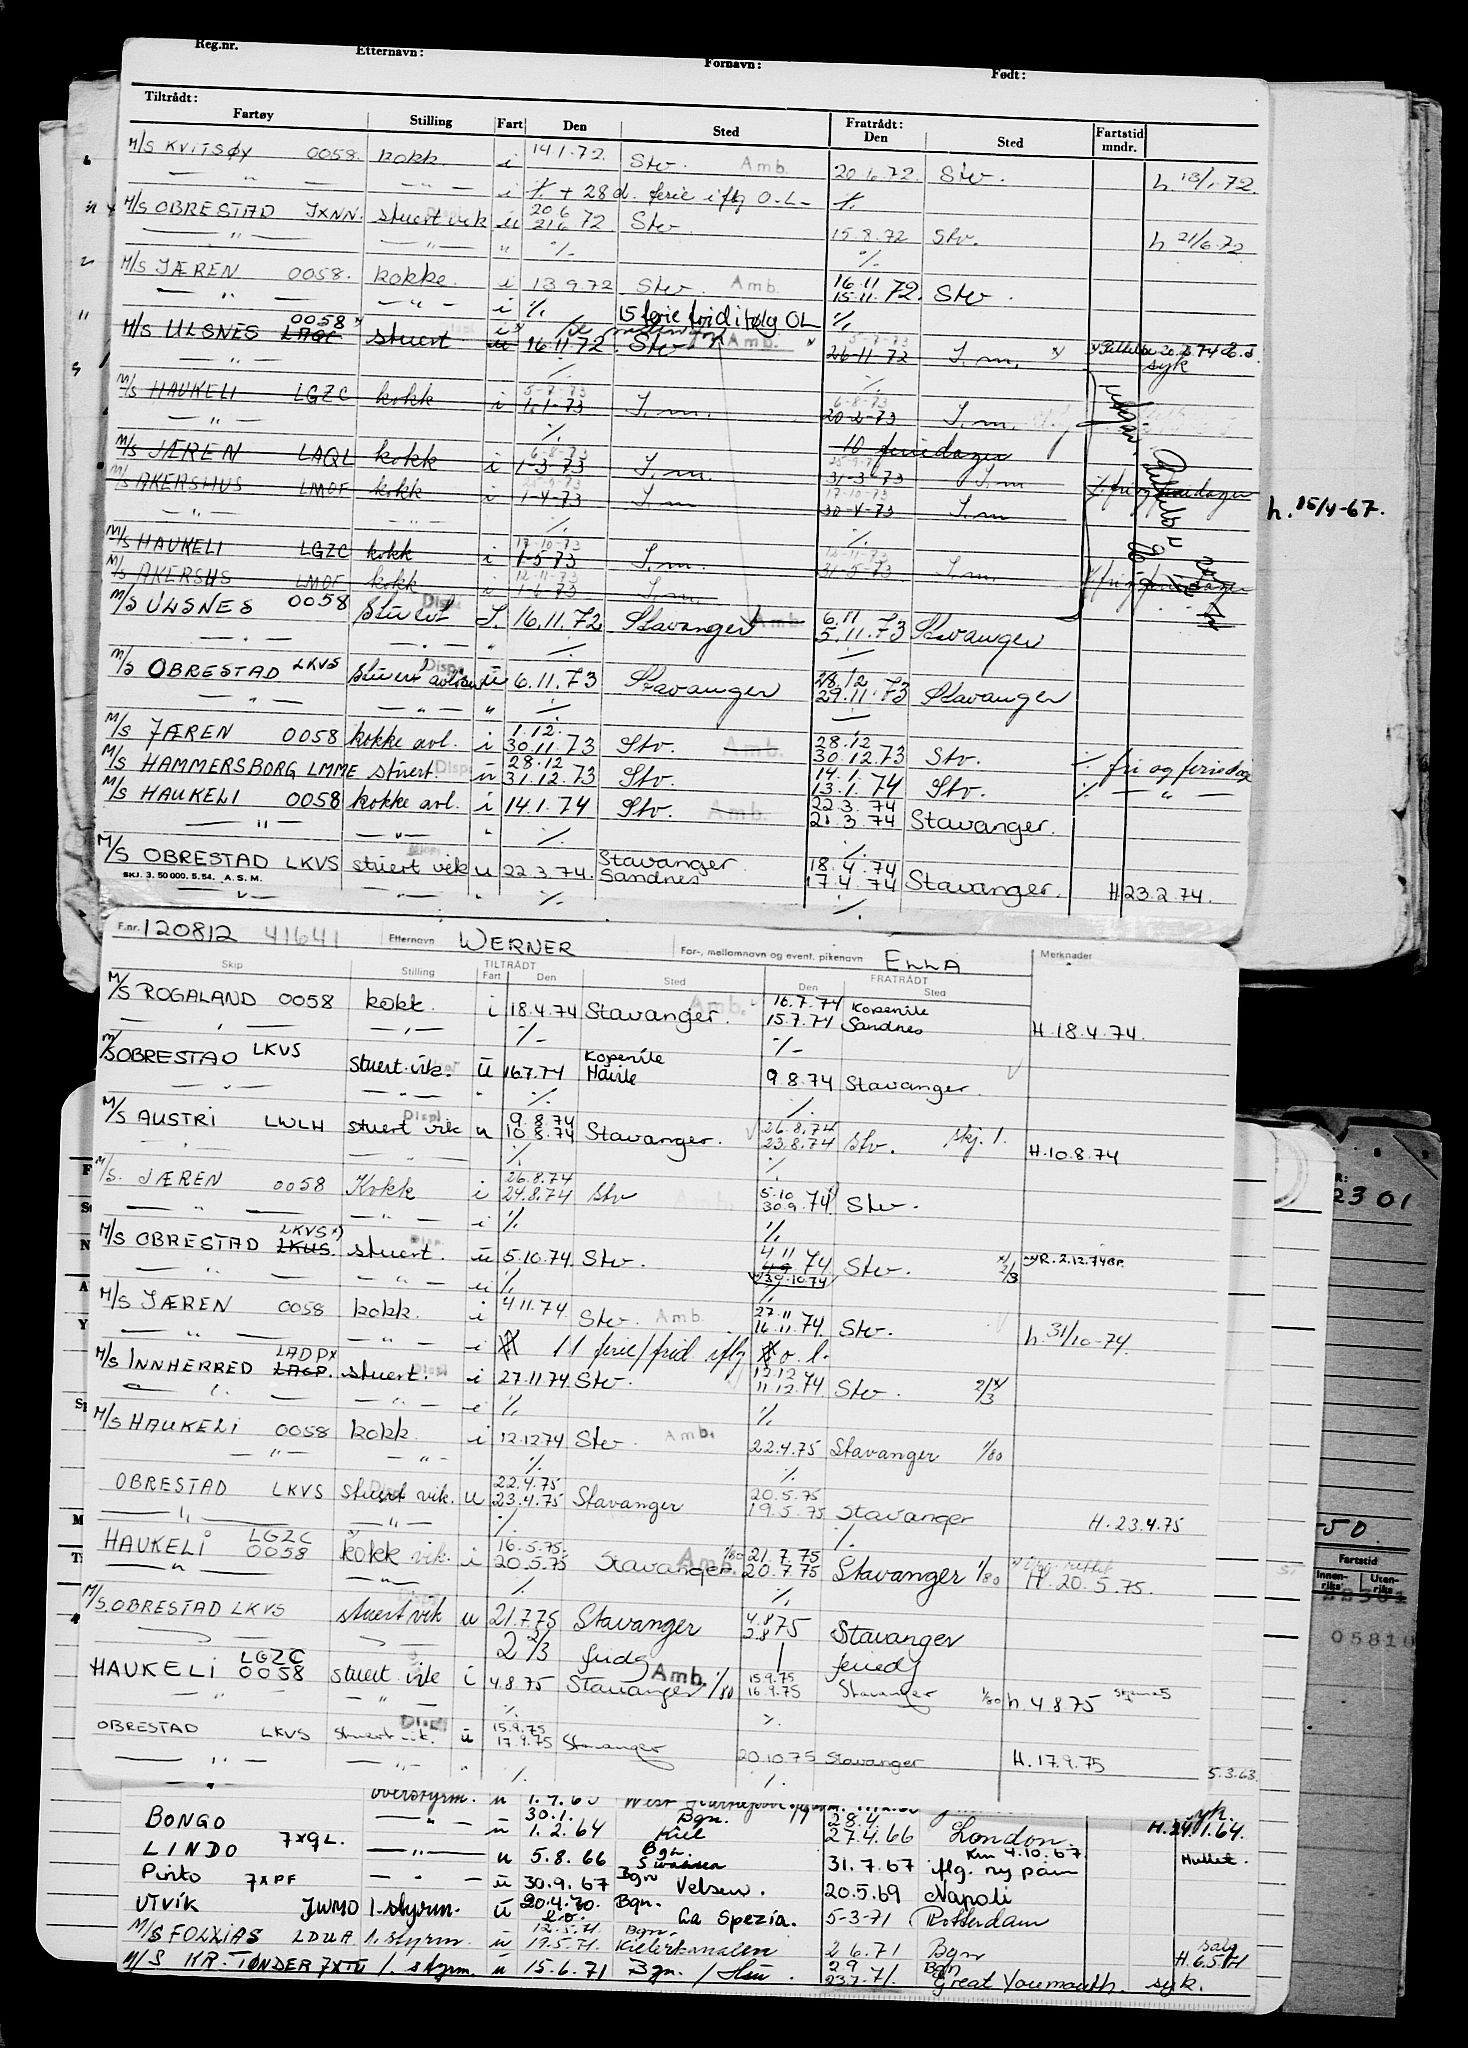 Reg.nr. Etternavn: Fornavn: Født:
Tiltrådt: Fratrådt:
Fartøy Stilling Fart Den Sted Den Sted Fartstid mndr.
M/S KVITSØY 0058. kokk i 14.1.72. Stv. Amb. 20.6.72. Stv. h 18/1.72.
— " — — " — i ./. + 28 d. ferie iflg O-L- ./.
M/S OBRESTAD JXNN. stuert vik ü 20.6 21.6.72 Stv. 15.8.72 Stv. h 21/6.72
— " — — " — " ./. ./.
M/S JÆREN 0058. kokke. i 13.9.72 Stv. Amb. 16.11 15.11.72. Stv.
— " — — " — i ./. 15 ferie frid i følg OL ./.
M/S ULSNES 0058 LAQC stuert i 16.11.72 Stv Amb. 26-11-72 S.m. syk
— " — ./. ./.
M/S HAUKELI LGZC kokk i 5-7-73 1-1-73 S.m. 6-8-73 20-2-73 S.m.
— " — ./. 10 feriedager
M/S JÆREN LAQL kokk i 6-8-73 1-3-73 S.m. 31-3-73 S.m
M/S AKERSHUS LMOF kokk i 1-4-73 S.m 17-10-73 30-4-73 S.m ./. fri og feriedager
— " — — " — ./. ./. h. 15/4-67.
M/S HAUKELI LGZC kokk i 17-10-73 1-5-73 S.m. 12-11-73 31-5-73 S.m.
M/S AKERSHS LMOF kokk i 12-11-73 1-6-73 S.m. ./. fri og feriedager
M/S ULSNES 0058 Displ. I. 16.11.72 Stavanger Amb. 6.11 5.11.73 Stavanger
— " — — " — " ./. ./.
M/S OBRESTAD LKVS Stuert avløser ü 6.11.73 Stavanger 28.12 29.11.73 Stavanger
— " — — " — " ./. ./.
M/S JÆREN 0058 kokke avl. i 1.12. 30.11.73 Stv. Amb. 28.12 30.12.73 Stv. ./. fri og feriedage
M/S HAMMERSBORG LMME stuert. Displ ü 28.12 31.12.73 Stv. 14.1. 13.1.74 Stv. ./. — " —
M/S HAUKELI 0058 kokke avl. i 14.1.74 Stv. Amb. 22.3.74 21.3.74 Stavanger.
— " — — " — " ./. ./.
M/S OBRESTAD LKVS stuert vik u 22.3.74. Stavanger Sandnes 18.4.74 17.4.74 Stavanger. H 23.2.74.
SKJ. 3. 50 000. 5.54. A.S.M.
— " — — " — " ./. ./.
F.nr. 120812 41641 Etternavn WERNER For-, mellomnavn og event. pikenavn ELLA Merknader
TILTRÅDT FRATRÅDT
Skip Stilling Fart Den Sted Den Sted
M/S ROGALAND 0058 kokk. i 18.4.74 Stavanger. Amb. 16.7.74 15.7.74 Sandnes H.18.4.74.
— " — — " — ./. ./.
M/S OBRESTAD LKVS stuert. vik. ü 16.7.74 9.8.74 Stavanger.
— " — — " — " ./. ./.
M/S AUSTRI LWLH Displ. stuert vik u 9.8.74 10.8.74 Stavanger. 26.8.74 23.8.74 Stv. skj. 1. H.10.8.74
— " — ./. ./.
M/S. JÆREN 0058 Kokk i 26.8.74 24.8.74 Stv 5.10 30.9.74 Stv.
— " — — " — i ./. ./.
M/S OBRESTAD LKVS x) LKUS. stuert. ü 5.10.74 Stv. 4.11.74 30.10.74 Stv. 2/3 R. 2.12.74 BP.
— " — — " — ü ./. ./.
M/S JÆREN 0058 kokk. i 4.11.74 Stv. Amb. 27.11 16.11.74. Stv. h 31/10-74.
— " — — " — i 11 ferie/frid iflg o. l.
M/S INNHERRED LADPx LAGP. stuert. Displ i 27.11.74 Stv. 12.12 11.12.74 Stv. 2/3
— " — — " — i ./. ./.
M/S HAUKELI 0058 kokk. i 12.12.74 Stv. Amb. 22.4.75 Stavanger 1/80
— " — — " — ./. ./.
OBRESTAD LKVS stuert vik. u 22.4.75 23.4.75 Stavanger 20.5.75 19.5.75 Stavanger H. 23.4.75
— " — — " — ./. ./.
HAUKELI LGZC 0058 kokk vik. i 16.5.75. 20.5.75 Stavanger Amb. 1/80 21.7.75 20.7.75 Stavanger 1/80 H. 20.5.75.
— " — — " — ./. ./.
M/S. OBRESTAD LKVS stuert vik u 21.7.75 Stavanger 4.8 3.8 75 Stavanger
2 2/3 fridg 1 feriedg
HAUKELI LGZC 0058 stuert vik i 4.8.75 Stavanger Amb. 1/80 15.9.75 16.9.75 Stavanger 1/80 h. 4.8.75
— " — — " — ./. ./.
OBRESTAD LKVS stuert vik. Displ ü 15.9.75 17.9.75 Stavanger 20.10.75 Stavanger H. 17.9.75
— " — — " — " ./. ./. 5.3.63.
overstyrm. u
BONGO — " — u 30.1. 1.2.64 Bgn. Kiel 28.4. 27.4.66 London. H. 24.1.64.
LINDO 7XQL. — " — u 5.8.66 Bgn. 31.7.67 iflg. ny påm Hullet.
Pinto 7XPF — " — ü 30.9.67 Bgn Velsen. 20.5.69 Napoli
UTVIK JWMO 1. styrm. ü 20.4.70. Bgn. La Spezia. 5-3-71 Rotterdam
M/S FOLXIAS LDUA 1. styrm. u 12.5.71. 19.5.71. Bgn. Kielerkanalen 2 6.71 Bgn H. 6.5.71
M/S KR. TØNDER 7XTU 1. styrm. ü 15.6.71 Bgn. 29 23.7.71. Bgn Great Yourmouth. syk.
2301
-50
Fartstid
Innen-riks Uten-riks
05810